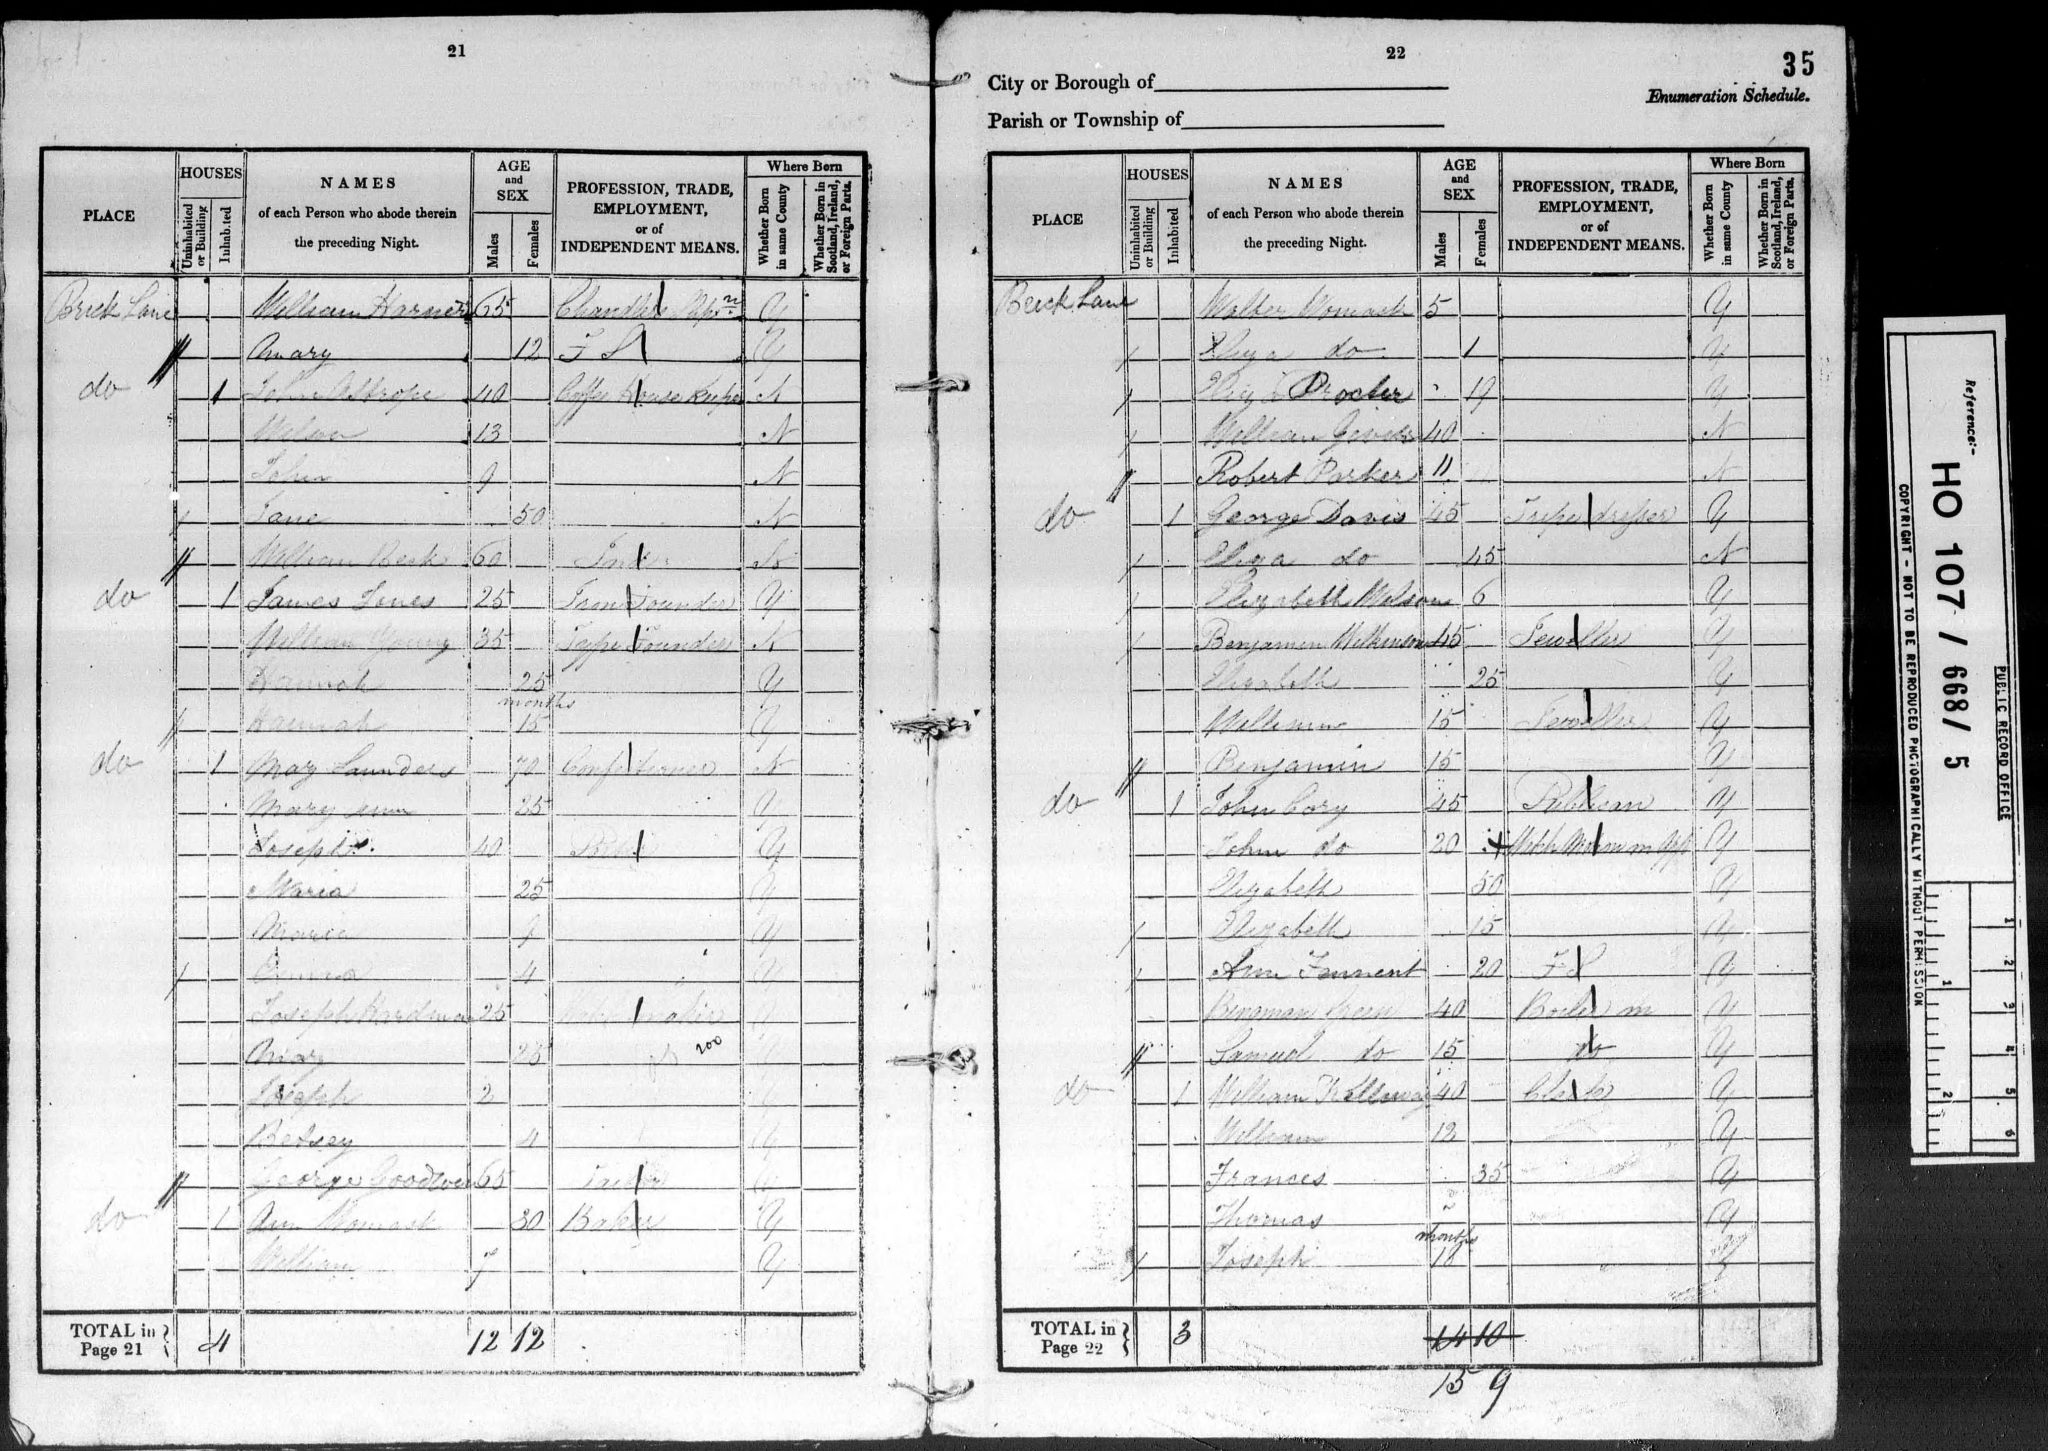 21
PLACE
HOUSES
Uninhabited or Building
Inhabited
NAMES
of each Person who abode therein
the preceding Night.
AGE
and
SEX
Males
Females
PROFESSION, TRADE,
EMPLOYMENT,
or of
INDEPENDENT MEANS.
Where Born
Whether Born in same County
Whether Born in Scotland, Ireland, or Foreign Parts.
Brick Lane William 65 Y
Mary 12 F S Y
do 1 John 40 Coffee House Keeper N
13 N
John 9 N
Jane 50 N
William 60
do 1 James Jones 25 Iron Founder Y
William Young 35 Type Founder N
Hannah 25 Y
months
Hannah 15 Y
do 1 May Saunders 70 Confectioner N
Mary Ann 25 Y
Joseph 40 Y
Maria 25 Y
Maria 9 Y
Emma 4 Y
Joseph 25 Y
Mary 25 200 Y
Joseph 2 Y
Betsey 4 Y
George Goodwin 65 Tailor Y
do 1 Ann Womack 30 Baker Y
William 7 Y
TOTAL in
Page 21
4 12 12
22
35
City or Borough of
Parish or Township of
Enumeration Schedule.
PLACE
HOUSES
Uninhabited or Building
Inhabited
NAMES
of each Person who abode therein
the preceding Night.
AGE
and
SEX
Males
Females
PROFESSION, TRADE,
EMPLOYMENT,
or of
INDEPENDENT MEANS.
Where Born
Whether Born in same County
Whether Born in Scotland, Ireland, or Foreign Parts.
Brick Lane Walter Womack 5 Y
Eliza do 1 Y
Eliza Procter 19 Y
William 40 N
Robert Parker 11 N
do 1 George Davis 45 Tripe dresser Y
Eliza do 45 N
Elizabeth Wilson 6 Y
Benjamin Wilkinson 45 Jeweller Y
Elizabeth 25 Y
William 15 Jeweller Y
Benjamin 15 Y
do 1 John Cory 45 Publican Y
John do 20 Y
Elizabeth 50 Y
Elizabeth 15 Y
Ann Tennent 20 F S Y
Green 40 Y
Samuel do 15 do Y
do 1 William 40 Clerk Y
William 12 Y
Frances 35 Y
Thomas Y
months
Joseph
TOTAL in
Page 22
3 14 10
15 9
Reference:-
HO 107 / 668/ 5
PUBLIC RECORD OFFICE
COPYRIGHT - NOT TO BE REPRODUCED PHOTOGRAPHICALLY WITHOUT PERMISSION
1 2 3 4 5 6
1 2